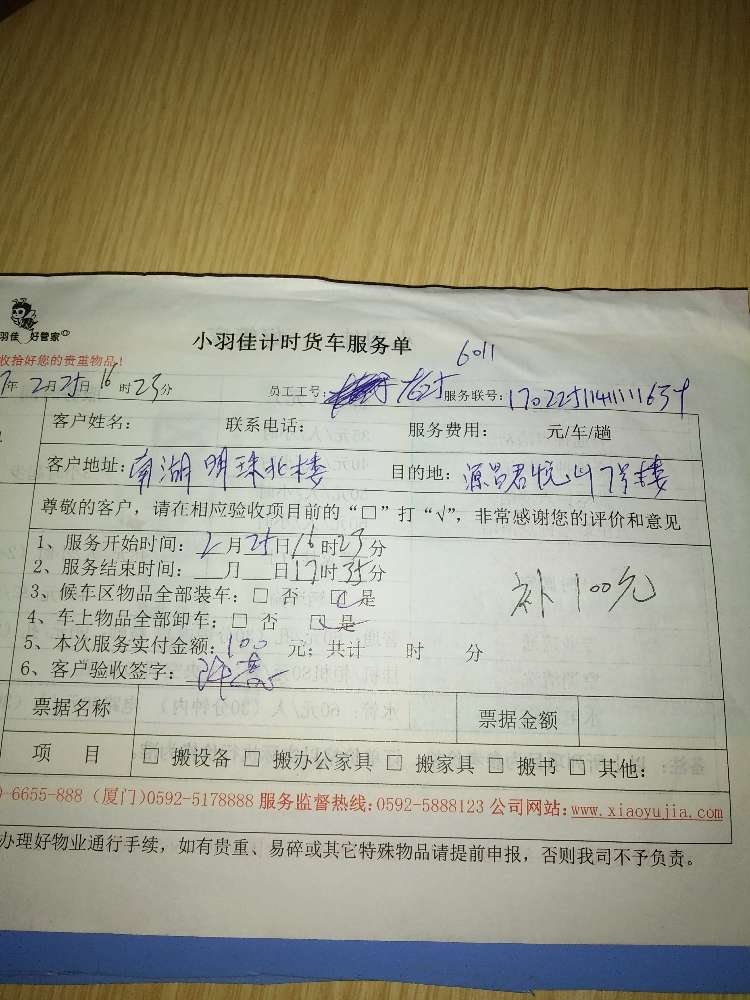 羽佳 好管家
小羽佳计时货车服务单
6011
收拾好您的贵重物品!
7年 2月25日 16时23分 员工工号: 服务联号:
客户姓名: 联系电话: 服务费用: 元/车/趟
客户地址: 南湖明珠北楼 目的地: 源昌君悦山7号楼
尊敬的客户,请在相应验收项目前的“□”打“√”,非常感谢您的评价和意见
1、服务开始时间: 2月25日16时23分
2、服务结束时间: __月__日17时35分
补100元
3、候车区物品全部装车: □ 否 ☑ 是
4、车上物品全部卸车: □ 否 ☑ 是
5、本次服务实付金额: 100 元; 共计 时 分
6、客户验收签字:
票据名称 票据金额
项 目 □ 搬设备 □ 搬办公家具 □ 搬家具 □ 搬书 □ 其他:
-6655-888 (厦门)0592-5178888 服务监督热线:0592-5888123 公司网站:www.xiaoyujia.com
办理好物业通行手续,如有贵重、易碎或其它特殊物品请提前申报,否则我司不予负责。